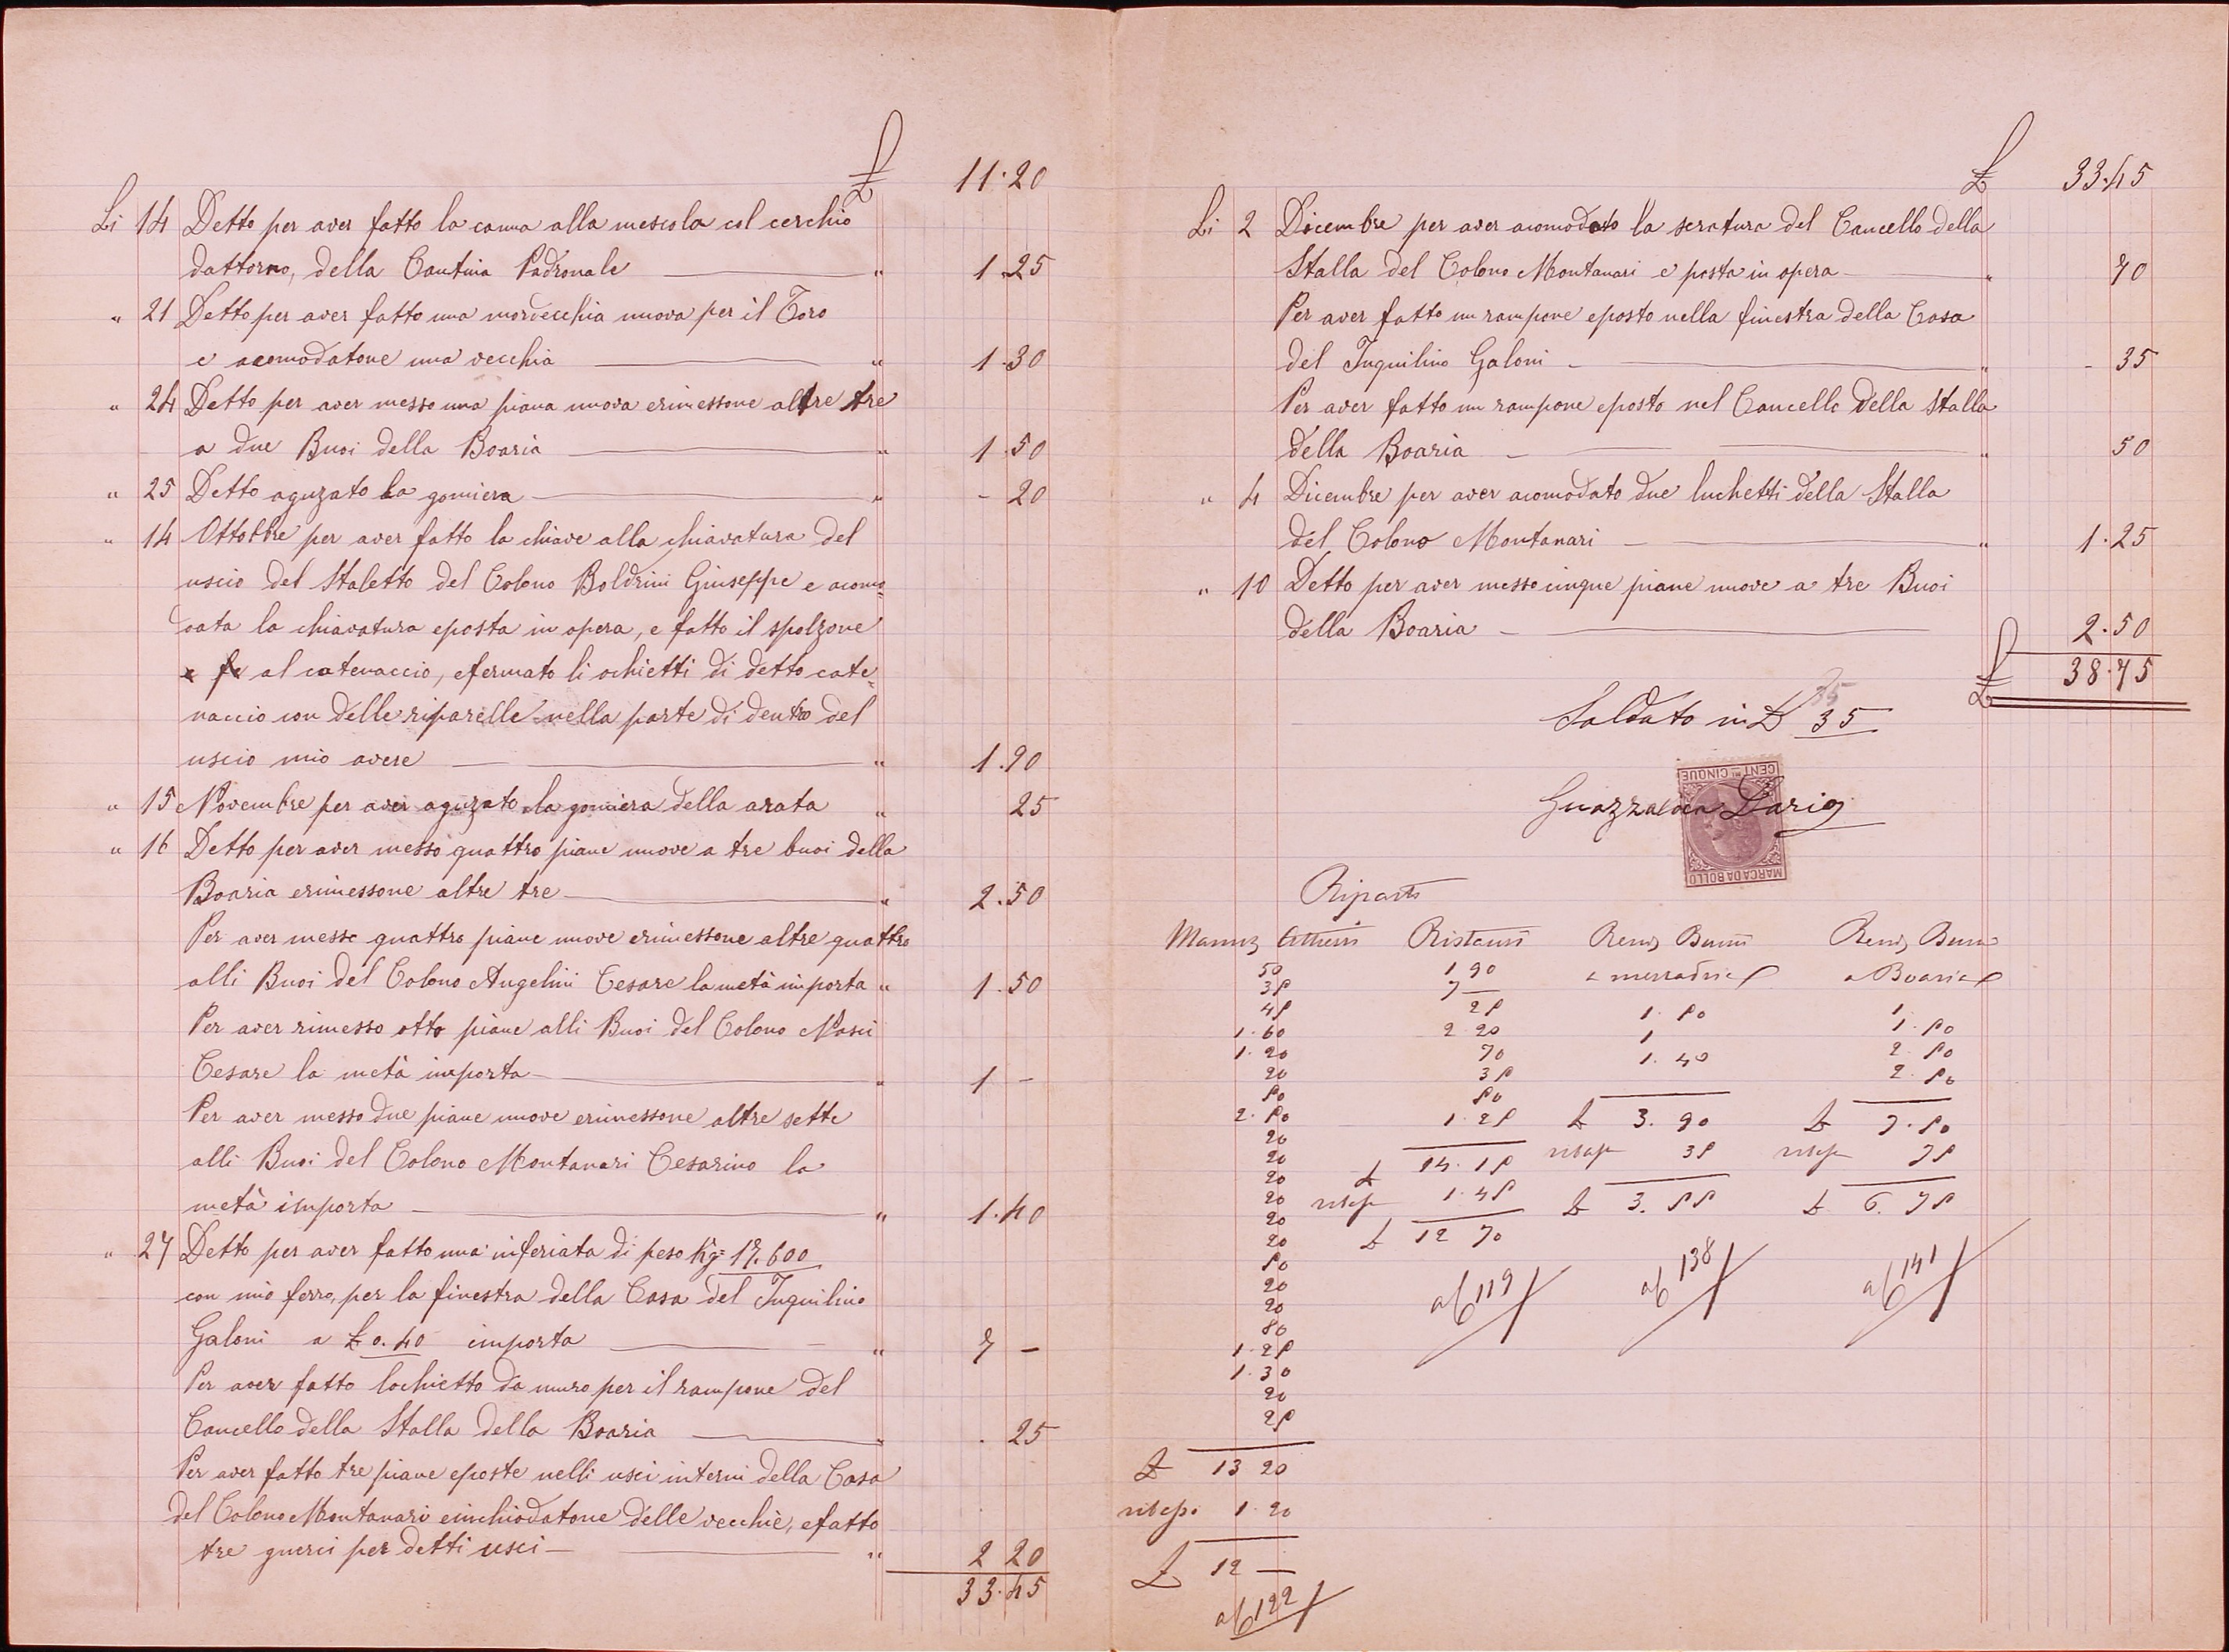 £ 11.20
Li 14 Detto per aver fatto la canna alla mescola col cerchio
dattorno, della Cantina Padronale " 1.25
" 21 Detto per aver fatto una mordecchia nuova per il Toro
e acomodatone una vecchia " 1.30
" 24 Detto per aver messo una piana nuova erimessone altre tre
a due Buoi della Boaria " 1.50
" 25 Detto aguzato la gomiera " - 20
" 14 Ottobbre per aver fatto la chiave alla chiavatura del
uscio del Staletto del Colono Boldrini Giuseppe e acomo=
data la chiavatura eposta in opera, e fatto il spolzone
al catenaccio, efermato li ochietti di detto cate=
naccio con delle riparelle nella parte di dentro del
uscio mio avere " 1.90
" 15 Novembre per aver aguzato la gomiera della arata " 25
" 16 Detto per aver messo quattro piane nuove a tre buoi della
Boaria erimessone altre tre " 2.50
Per aver messo quattro piane nuove erimessone altre quattro
alli Buoi del Colono Angelini Cesare la metà importa " 1.50
Per aver rimesso otto piane alli Buoi del Colono Masci
Cesare la metà importa " 1 -
Per aver messo due piane nuove erimessone altre sette
alli Buoi del Colono Montanari Cesarino la
metà importa " 1.40
" 27 Detto per aver fatto una inferiata di peso Kg= 17.600
con mio ferro, per la finestra della Casa del Inquilino
Galoni a £ 0.40 importa " 7 -
Per aver fatto lochietto da muro per il rampone del
Cancello della Stalla della Boaria " . 25
Per aver fatto tre piane eposte nelli usci interni della Casa
del Colono Montanari einchiodatone delle vecchie, efatto
tre guerci per detti usci " 2 20
33.45
£ 33.45
Li 2 Dicembre per aver acomodato la seratura del Cancello della
Stalla del Colono Montanari e posta in opera " 70
Per aver fatto un rampone eposto nella finestra della Casa
del Inquilino Galoni " - 35
Per aver fatto un rampone eposto nel Cancello della Stalla
della Boaria " 50
" 4 Dicembre per aver acomodato due luchetti della Stalla
del Colono Montanari " 1.25
" 10 Detto per aver messo cinque piane nuove a tre Buoi
della Boaria 2.50
£ 38.75
Saldato in £ 35
CENT.MI CINQUE
Dario
MARCA DA BOLLO
Riparto
Manuz Attrezzi
50
35
45
1.60
1.20
20
50
2.50
20
20
20
20
20
20
50
20
20
80
1.25
1.30
20
25
£ 13 20
1.20
£ 12 —
a/6 122
Ristauri
1 90
7 —
25
2 20
70
35
50
1.25
£ 14.15
1.45
£ 12 70
a/6 119
Rend Buoi
a mezzadria
1.50
1
1.40
£ 3.90
35
£ 3.55
a/6 138
Rend Buoi
a Boaria
1
1.50
2.50
2.50
£ 7.50
75
£ 6.75
a/6 141